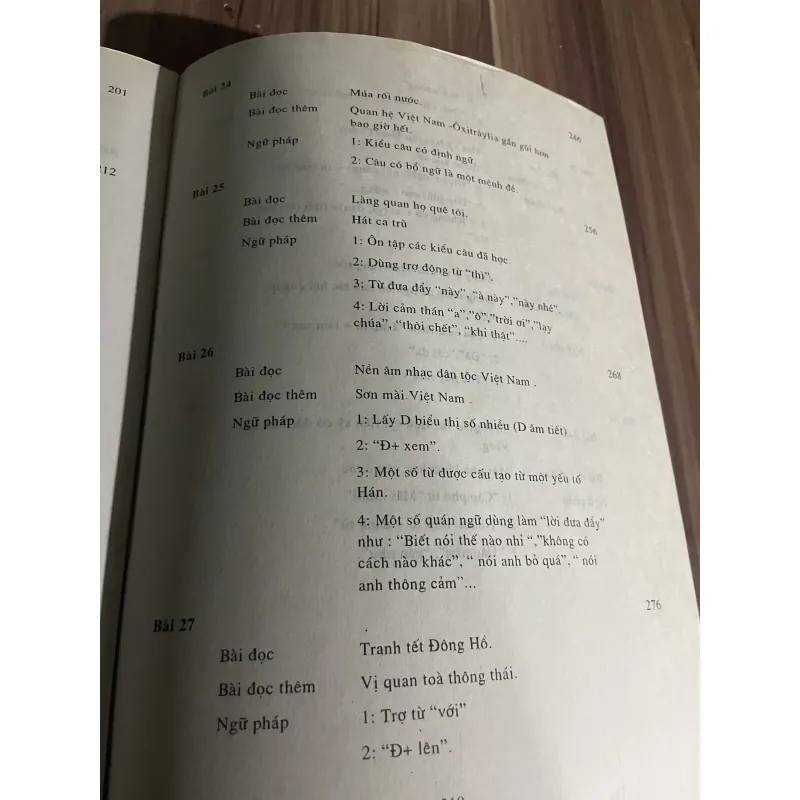 201
212
Bài 24
Bài đọc Múa rối nước. 246
Bài đọc thêm Quan hệ Việt Nam -Ôxitrâylia gần gũi hơn
bao giờ hết.
Ngữ pháp 1: Kiểu câu có định ngữ.
2: Câu có bổ ngữ là một mệnh đề.
Bài 25
Bài đọc Làng quan họ quê tôi. 256
Bài đọc thêm Hát ca trù
Ngữ pháp 1: Ôn tập các kiểu câu đã học.
2: Dùng trợ động từ "thì".
3: Từ đưa đẩy "này", "à này","này nhé".
4: Lời cảm thán "a","ô","trời ơi","lạy
chúa", "thôi chết", "khi thật"....
Bài 26
Bài đọc Nền âm nhạc dân tộc Việt Nam . 268
Bài đọc thêm Sơn mài Việt Nam .
Ngữ pháp 1: Lấy D biểu thị số nhiều (D âm tiết)
2: "Đ+ xem".
3: Một số từ được cấu tạo từ một yếu tố
Hán.
4: Một số quán ngữ dùng làm "lời đưa đẩy"
như : "Biết nói thế nào nhỉ ","không có
cách nào khác", " nói anh bỏ quá", " nói
anh thông cảm"...
Bài 27 276
Bài đọc Tranh tết Đông Hồ.
Bài đọc thêm Vị quan toà thông thái.
Ngữ pháp 1: Trợ từ "với"
2: "Đ+ lên".